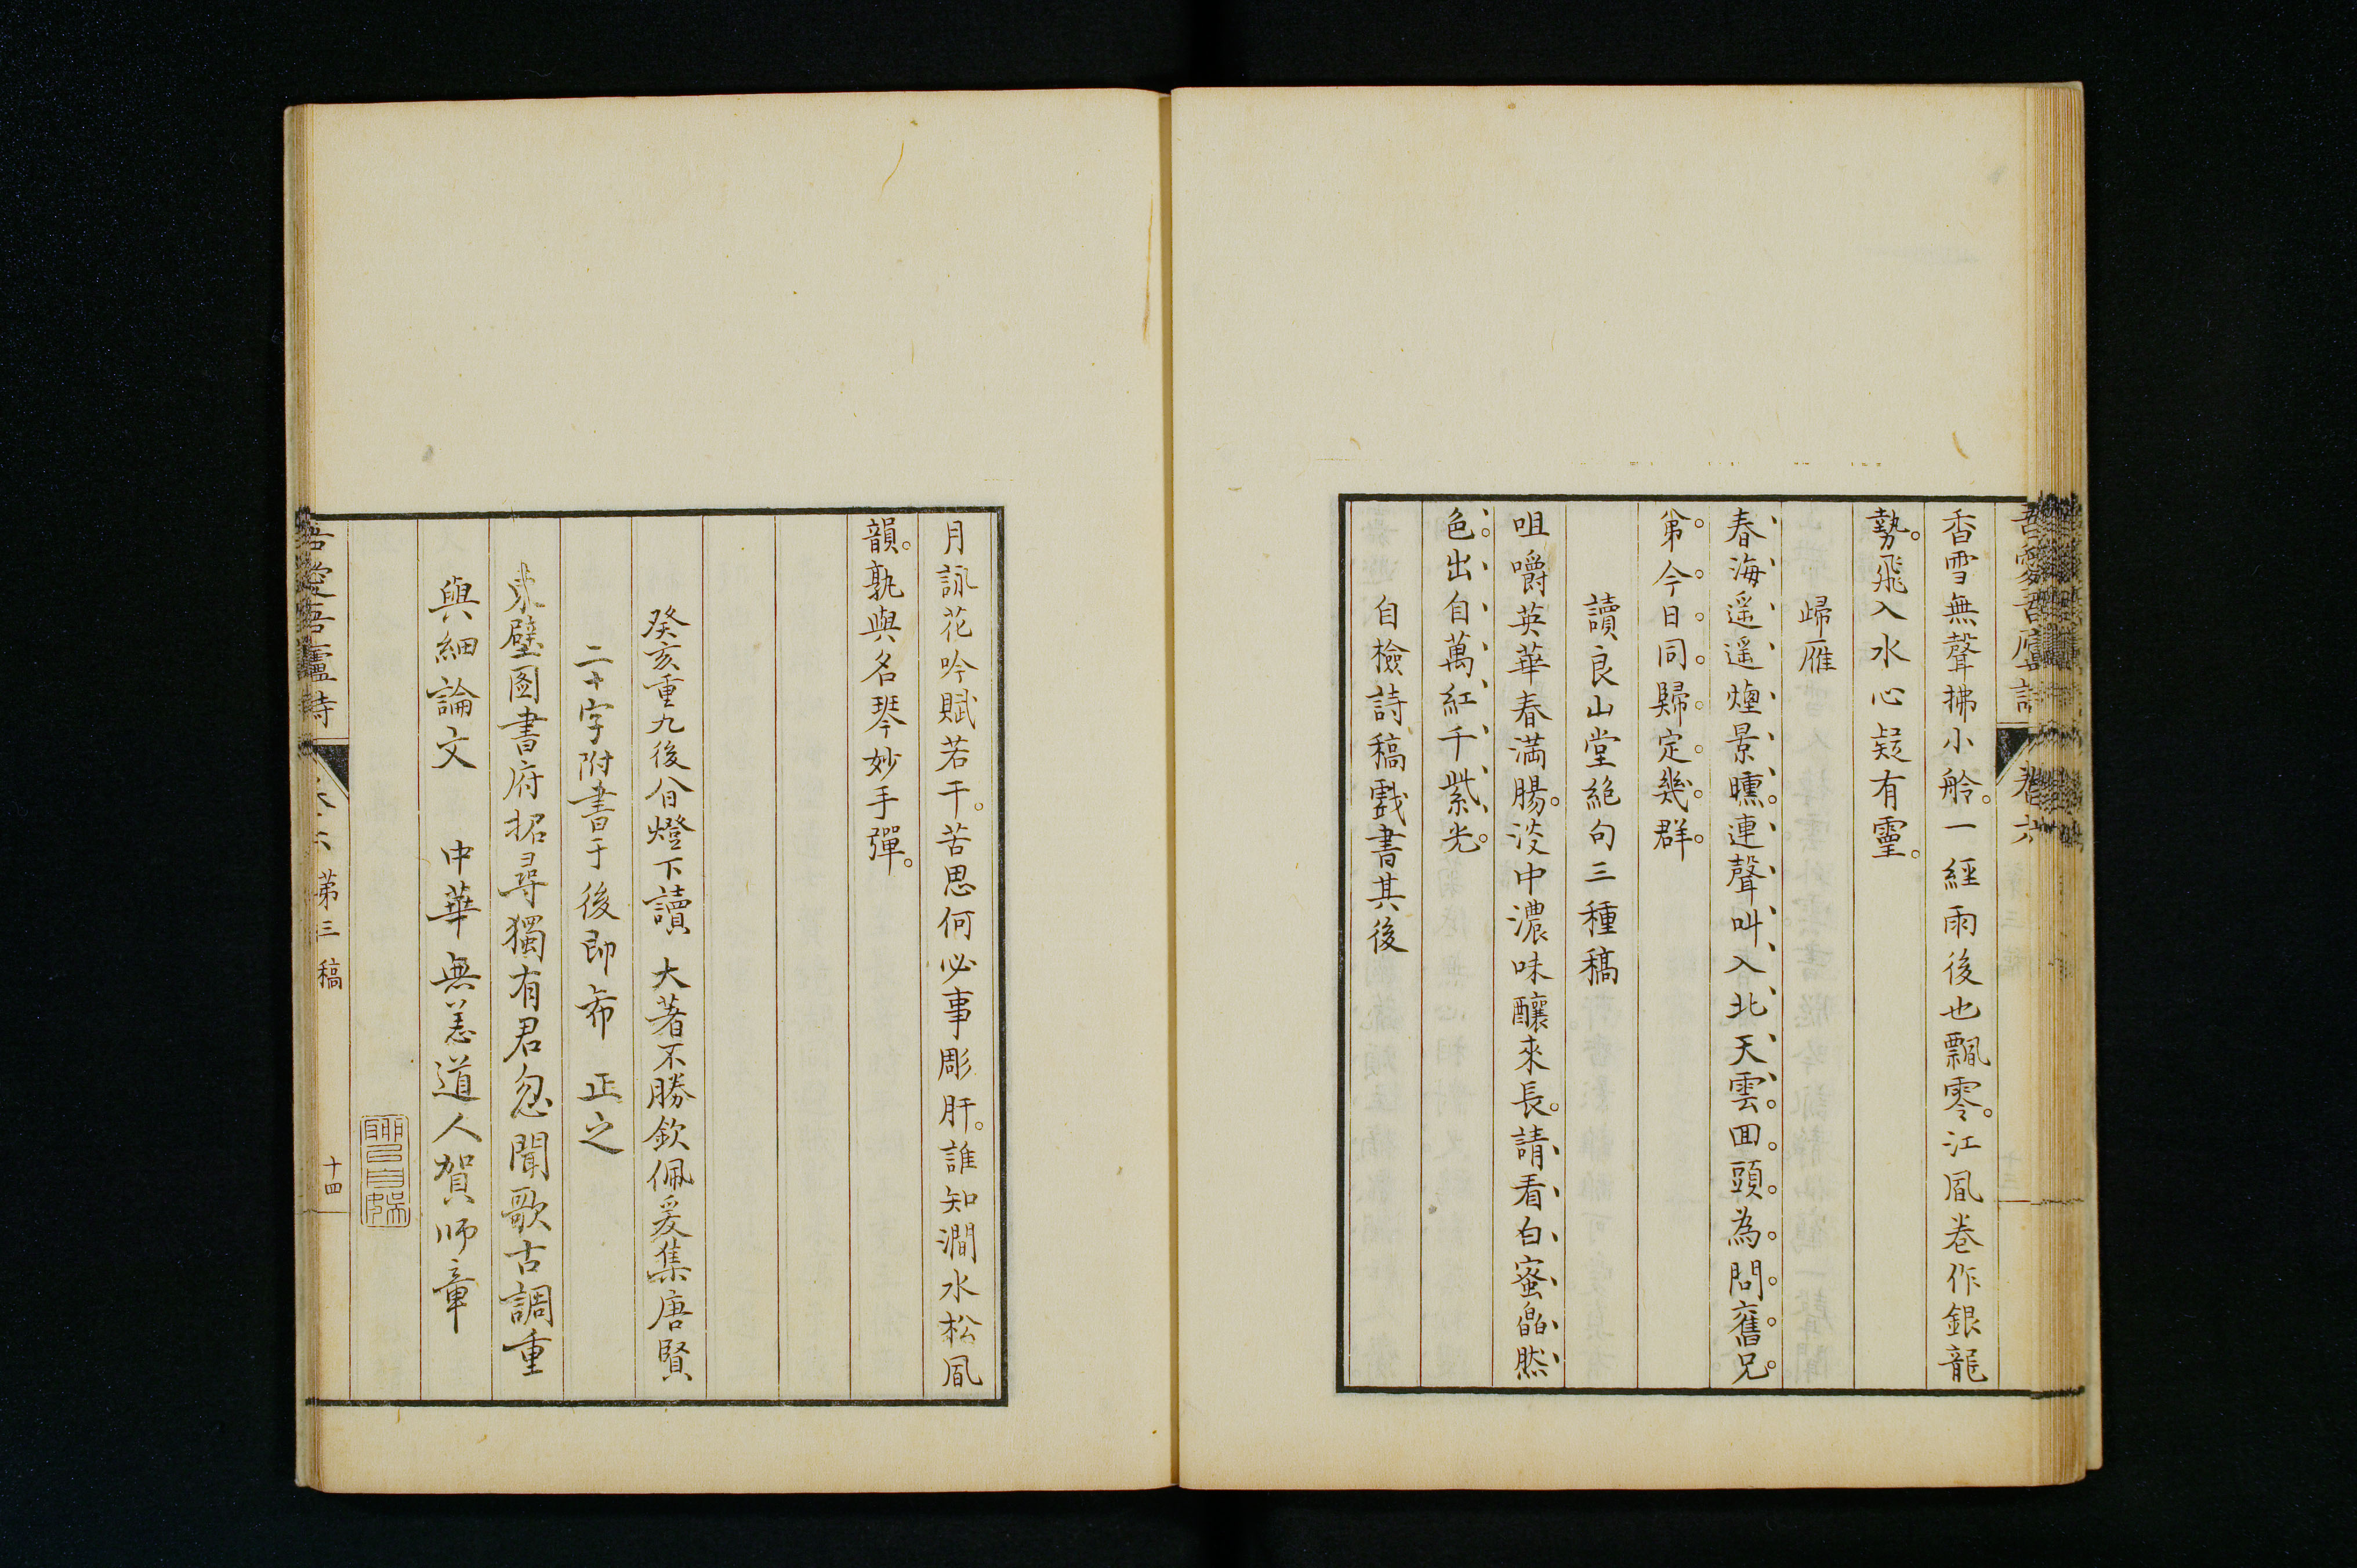 吾愛吾廬詩 卷六
香雪無聲拂小舲。一經雨後也飄零。江風卷作銀龍
勢。飛入水心疑有靈。
歸雁
春海遥遥煙景曛。連聲叫入北天雲。囬頭為問舊兄
第。今日同歸定幾群。
讀良山堂絶句三種稿
咀嚼英華春満腸。淡中濃味釀來長。請看白蜜皛然
色。出自萬紅千紫光。
自檢詩稿戲書其後
月詠花吟賦若干。苦思何必事彫肝。誰知澗水松風
韻。孰與名琴妙手彈。
癸亥重九後 燈下讀 大著不勝欽佩爰集唐賢
二十字附書于後即希 正之
東壁圖書府招尋獨有君忽聞歌古調重
與細論文 中華無恙道人賀師章
吾愛吾廬詩 卷六 第三稿 十四